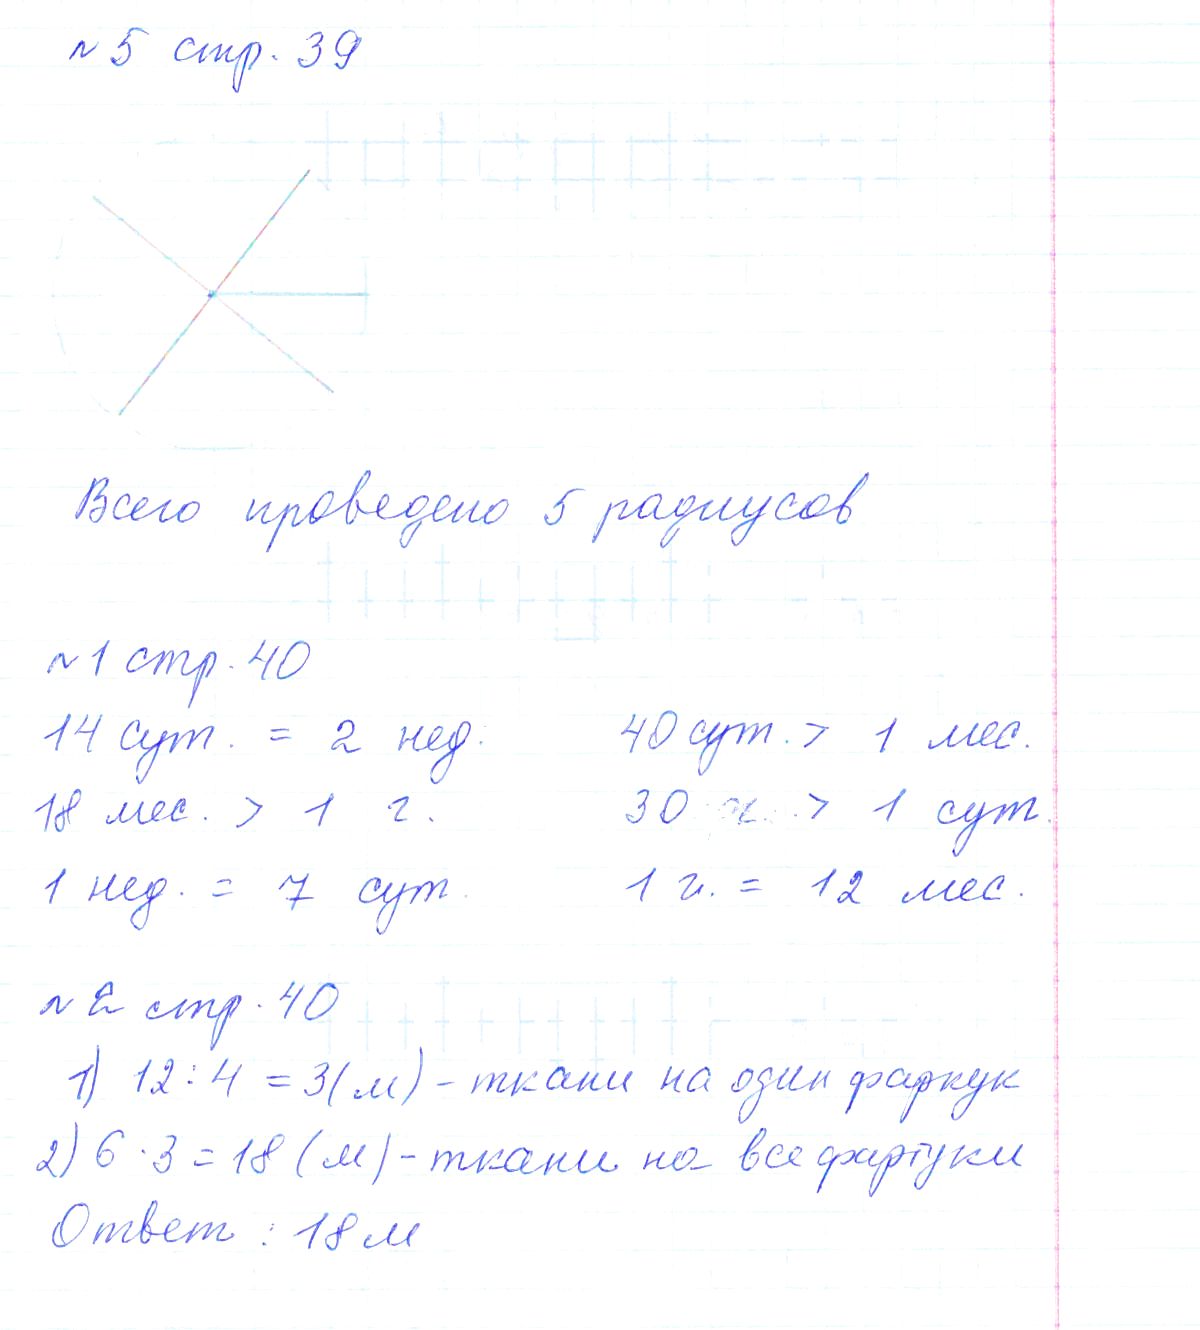 №5 стр. 39
Всего проведено 5 радиусов
№1 стр. 40
14 сут. = 2 нед. 40 сут. > 1 мес.
18 мес. > 1 г. 30 ч. > 1 сут.
1 нед. = 7 сут. 1 г. = 12 мес.
№2 стр. 40
1) 12 : 4 = 3 (м) - ткани на один фартук
2) 6 · 3 = 18 (м) - ткани на все фартуки
Ответ : 18 м